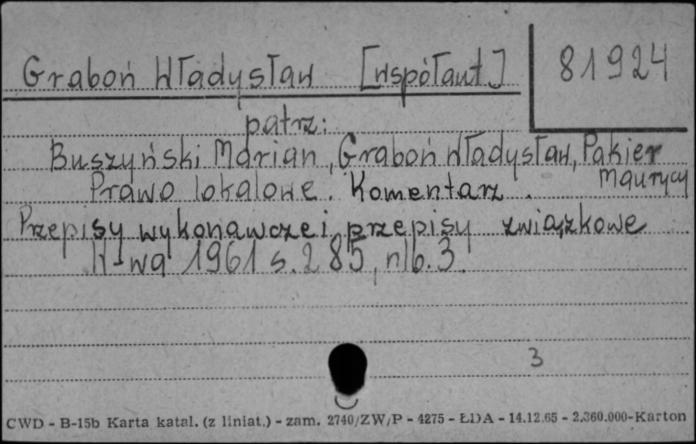 Graboń Władysław [współaut.] 81924
patrz:
Buszyński Marian, Graboń Władysław, Pakier Maurycy
Prawo lokalowe. Komentarz.
Przepisy wykonawcze i przepisy związkowe
W-wa 1961 s. 285, nlb. 3.
3
CWD - B-15b Karta katal. (z liniat.) - zam. 2740/ZW/P - 4275 - ŁDA - 14.12.65 - 2.360.000-Karton